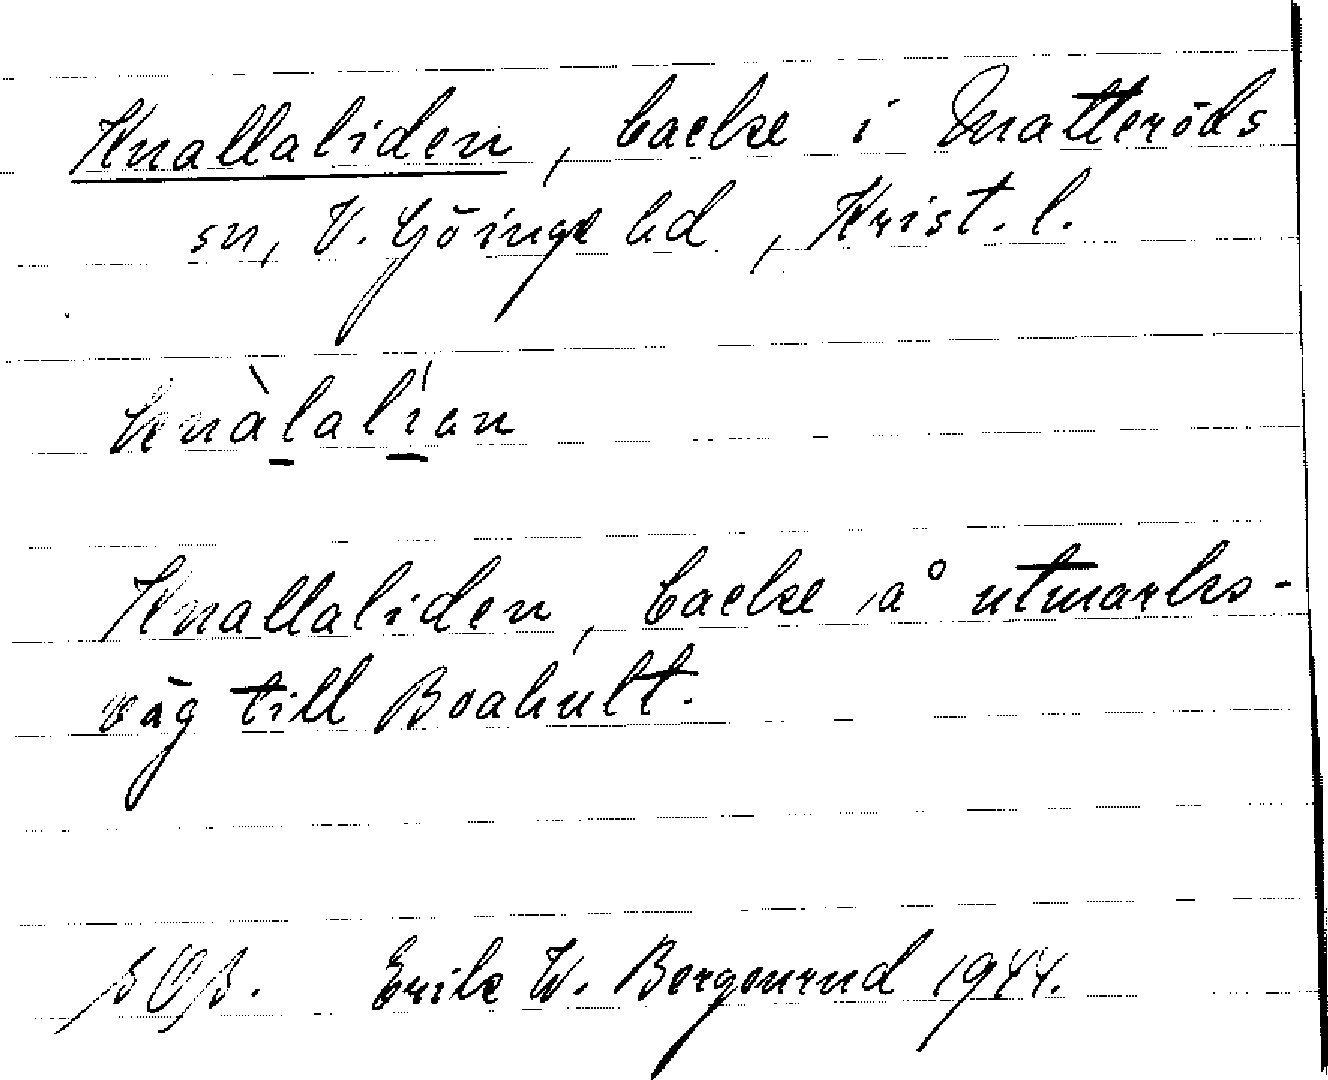 Knallaliden, backe i Matteröds
sn, V. Göinge hd, Krist. l.
knàlalían
Knallaliden, backe å utmarks-
väg till Boahult.
Erik W. Bergenrud 1944.